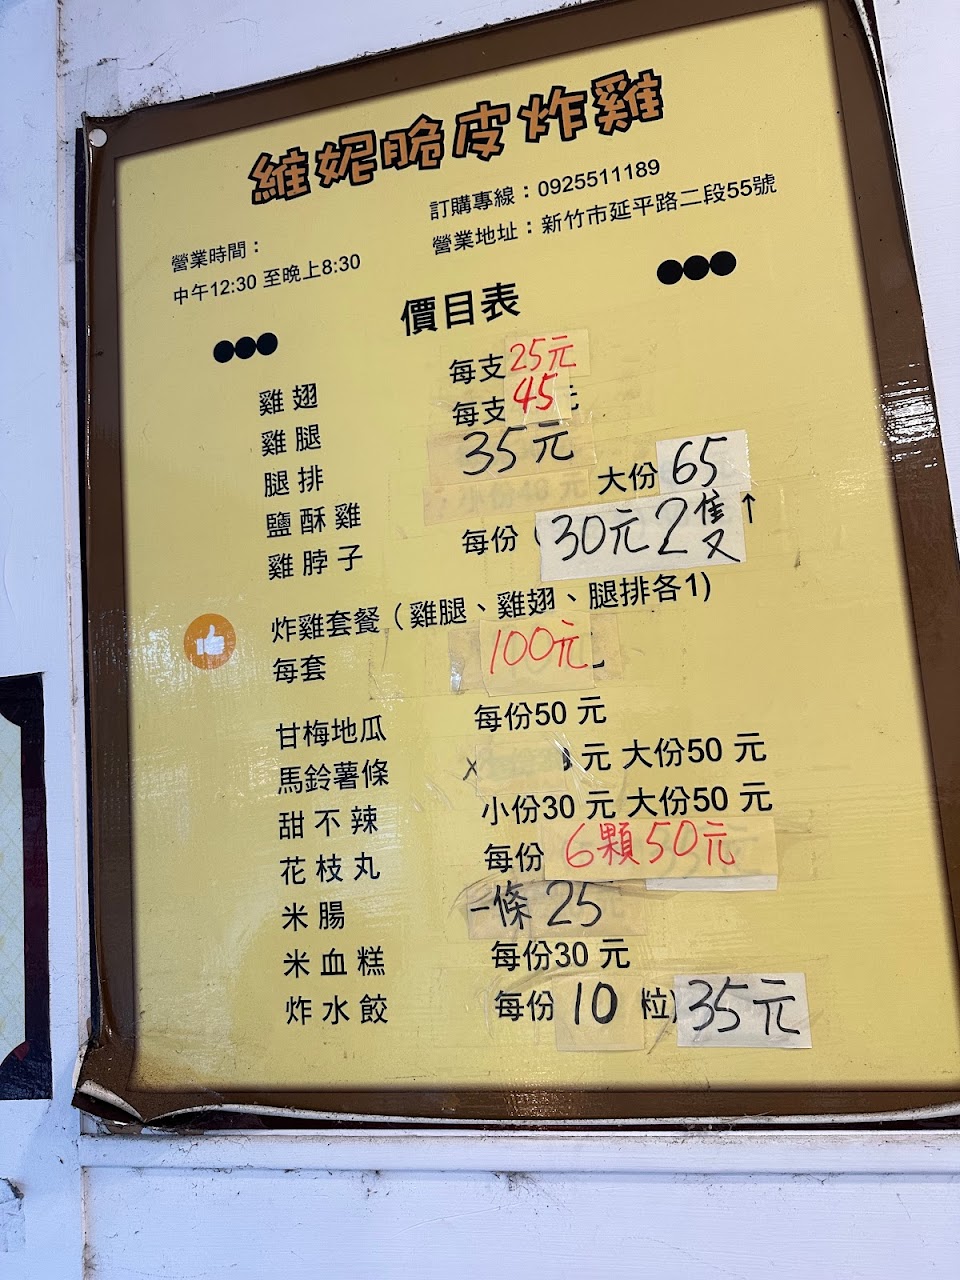 維妮脆皮炸雞
訂購專線：0925511189
營業地址：新竹市延平路二段55號
營業時間：
中午12:30 至晚上8:30
價目表
雞翅 每支25元
雞腿 每支45
腿排 35元
鹽酥雞 大份65
雞脖子 每份 30元2隻↑
炸雞套餐（雞腿、雞翅、腿排各1)
每套 100元
甘梅地瓜 每份50 元
馬鈴薯條 元 大份50 元
甜不辣 小份30 元 大份50 元
花枝丸 每份 6顆50元
米腸 一條 25
米血糕 每份30 元
炸水餃 每份 10 粒) 35元